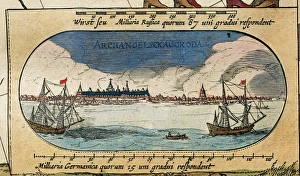 Wirst seu Milliaria Russica quorum 87 uni gradui respondent
ARCHANGELSCKAGRODA
Milliaria Germanica quorum 15 uni gradui respondent